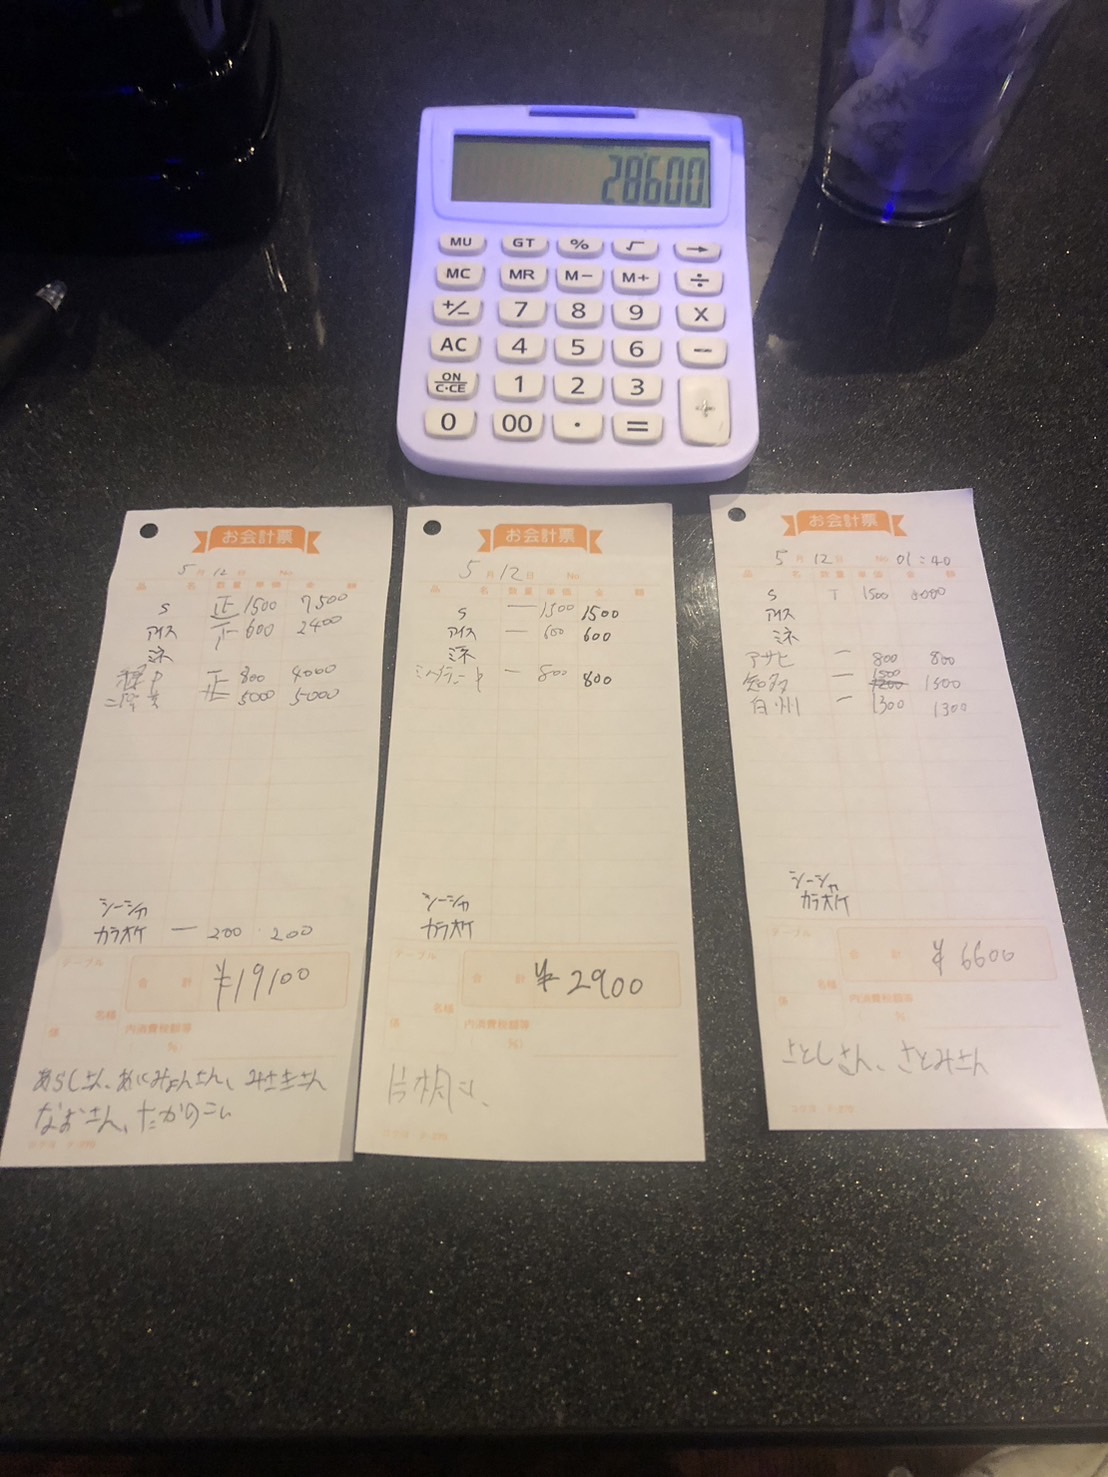 28'600
MU GT % √ →
MC MR M− M+ ÷
+/− 7 8 9 X
AC 4 5 6 −
ON/C·CE 1 2 3 +
0 00 · =
お会計票
5月12日 No.
品名 数量 単価 金額
S 正 1500 7500
アイス 600 2400
ミネ
正 800 4000
5000 5000
シーシャ
カラオケ 一 200 200
テーブル
合計 ¥19100
係 名様 内消費税額等
( %)
なおさん、たかのこい
お会計票
5月12日 No.
品名 数量 単価 金額
S 一 1500 1500
アイス 一 600 600
ミネ
一 800 800
シーシャ
カラオケ
テーブル
合計 ¥2900
係 名様 内消費税額等
( %)
お会計票
5月12日 No. 01:40
品名 数量 単価 金額
S T 1500 3000
アイス
ミネ
アサヒ 一 800 800
知多 一 1500 1500
白州 一 1300 1300
シーシャ
カラオケ
テーブル
合計 ¥6600
係 名様 内消費税額等
%
さとしさん、さとみさん